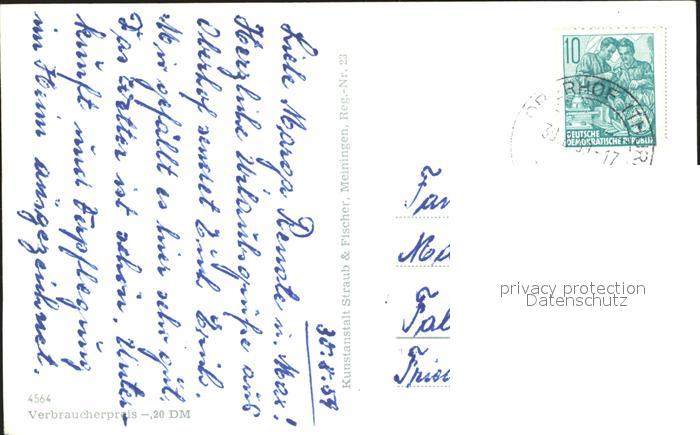 30.8.59
Liebe Marga Renate u. Max!
Herzliche Urlaubsgrüße aus
Oberhof sendet Euch
Mir gefällt es hier sehr gut.
Das Wetter ist schön. Unter-
kunft und Verpflegung
im Heim ausgezeichnet.
4564
Verbraucherpreis —,20 DM
Kunstanstalt Straub & Fischer, Meiningen, Reg.-Nr. 23
10
DEUTSCHE
DEMOKRATISCHE REPUBLIK
OBERHOF (THÜR
Fam
Ma
Fal
Frie
privacy protection
Datenschutz